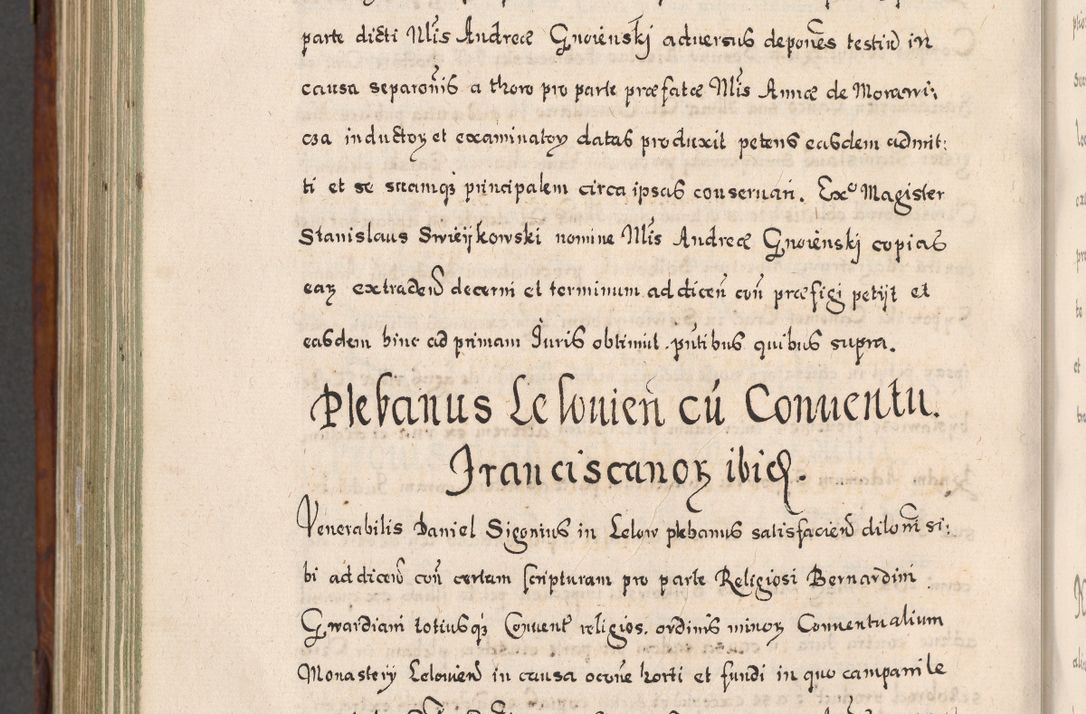 parte dicti Mĺis Andreæ Gnoienskj aduersus deponẽs testiũ in
causa separoñis a thoro pro parte præfatæ Mĺis Annæ de Morawi:
cza inductoꝝ et examinatoꝝ datas produxit petens easdem admit:
ti et se suamqȝ principalem circa ipsas conseruari. Exᵒ Magister
Stanislaus Swieÿkowski nomine Mĺis Andreæ Gnoienskj copias
eaꝝ extradeñ decerni et terminum ad diceñ coñ præfigi petijt et
easdem hinc ad primam Juris obtinuit pñtibus quibus supra.
Plebanus Lelouieñ cũ Conuentu.
Franciscanoꝝ ibid.
Venerabilis Daniel Sigonius in Lelow plebanus satisfacieñ dilõni si:
bi ad diceñ coñ certam scripturam pro parte Religiosi Bernardini
Gwardiani totiusqȝ Conuent religios. ordinis minoꝝ Conuentualium
Monasterij Lelouieñ in causa ocoñe horti et fundi in quo campanile